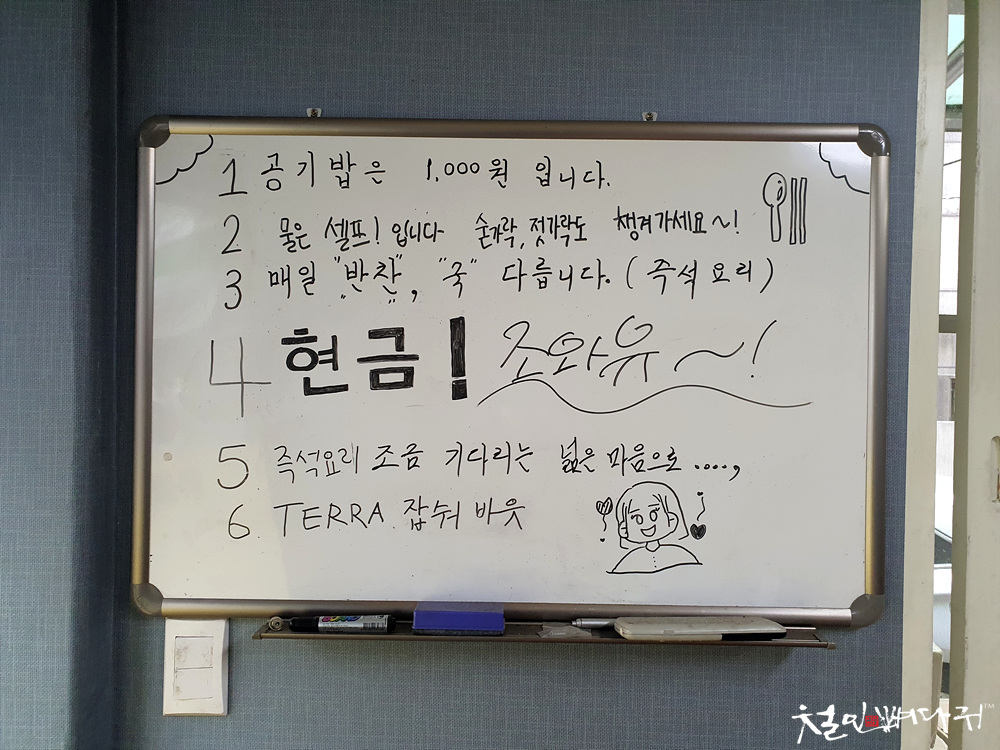 1 공기밥은 1,000원 입니다.
2 물은 셀프! 입니다 숟가락, 젓가락도 챙겨가세요~!
3 매일 "반찬", "국" 다릅니다. (즉석요리)
4 현금! 조와유~!
5 즉석요리 조금 기다리는 넓은 마음으로.....,
6 TERRA 잡숴 바웃
철인뼈다귀™